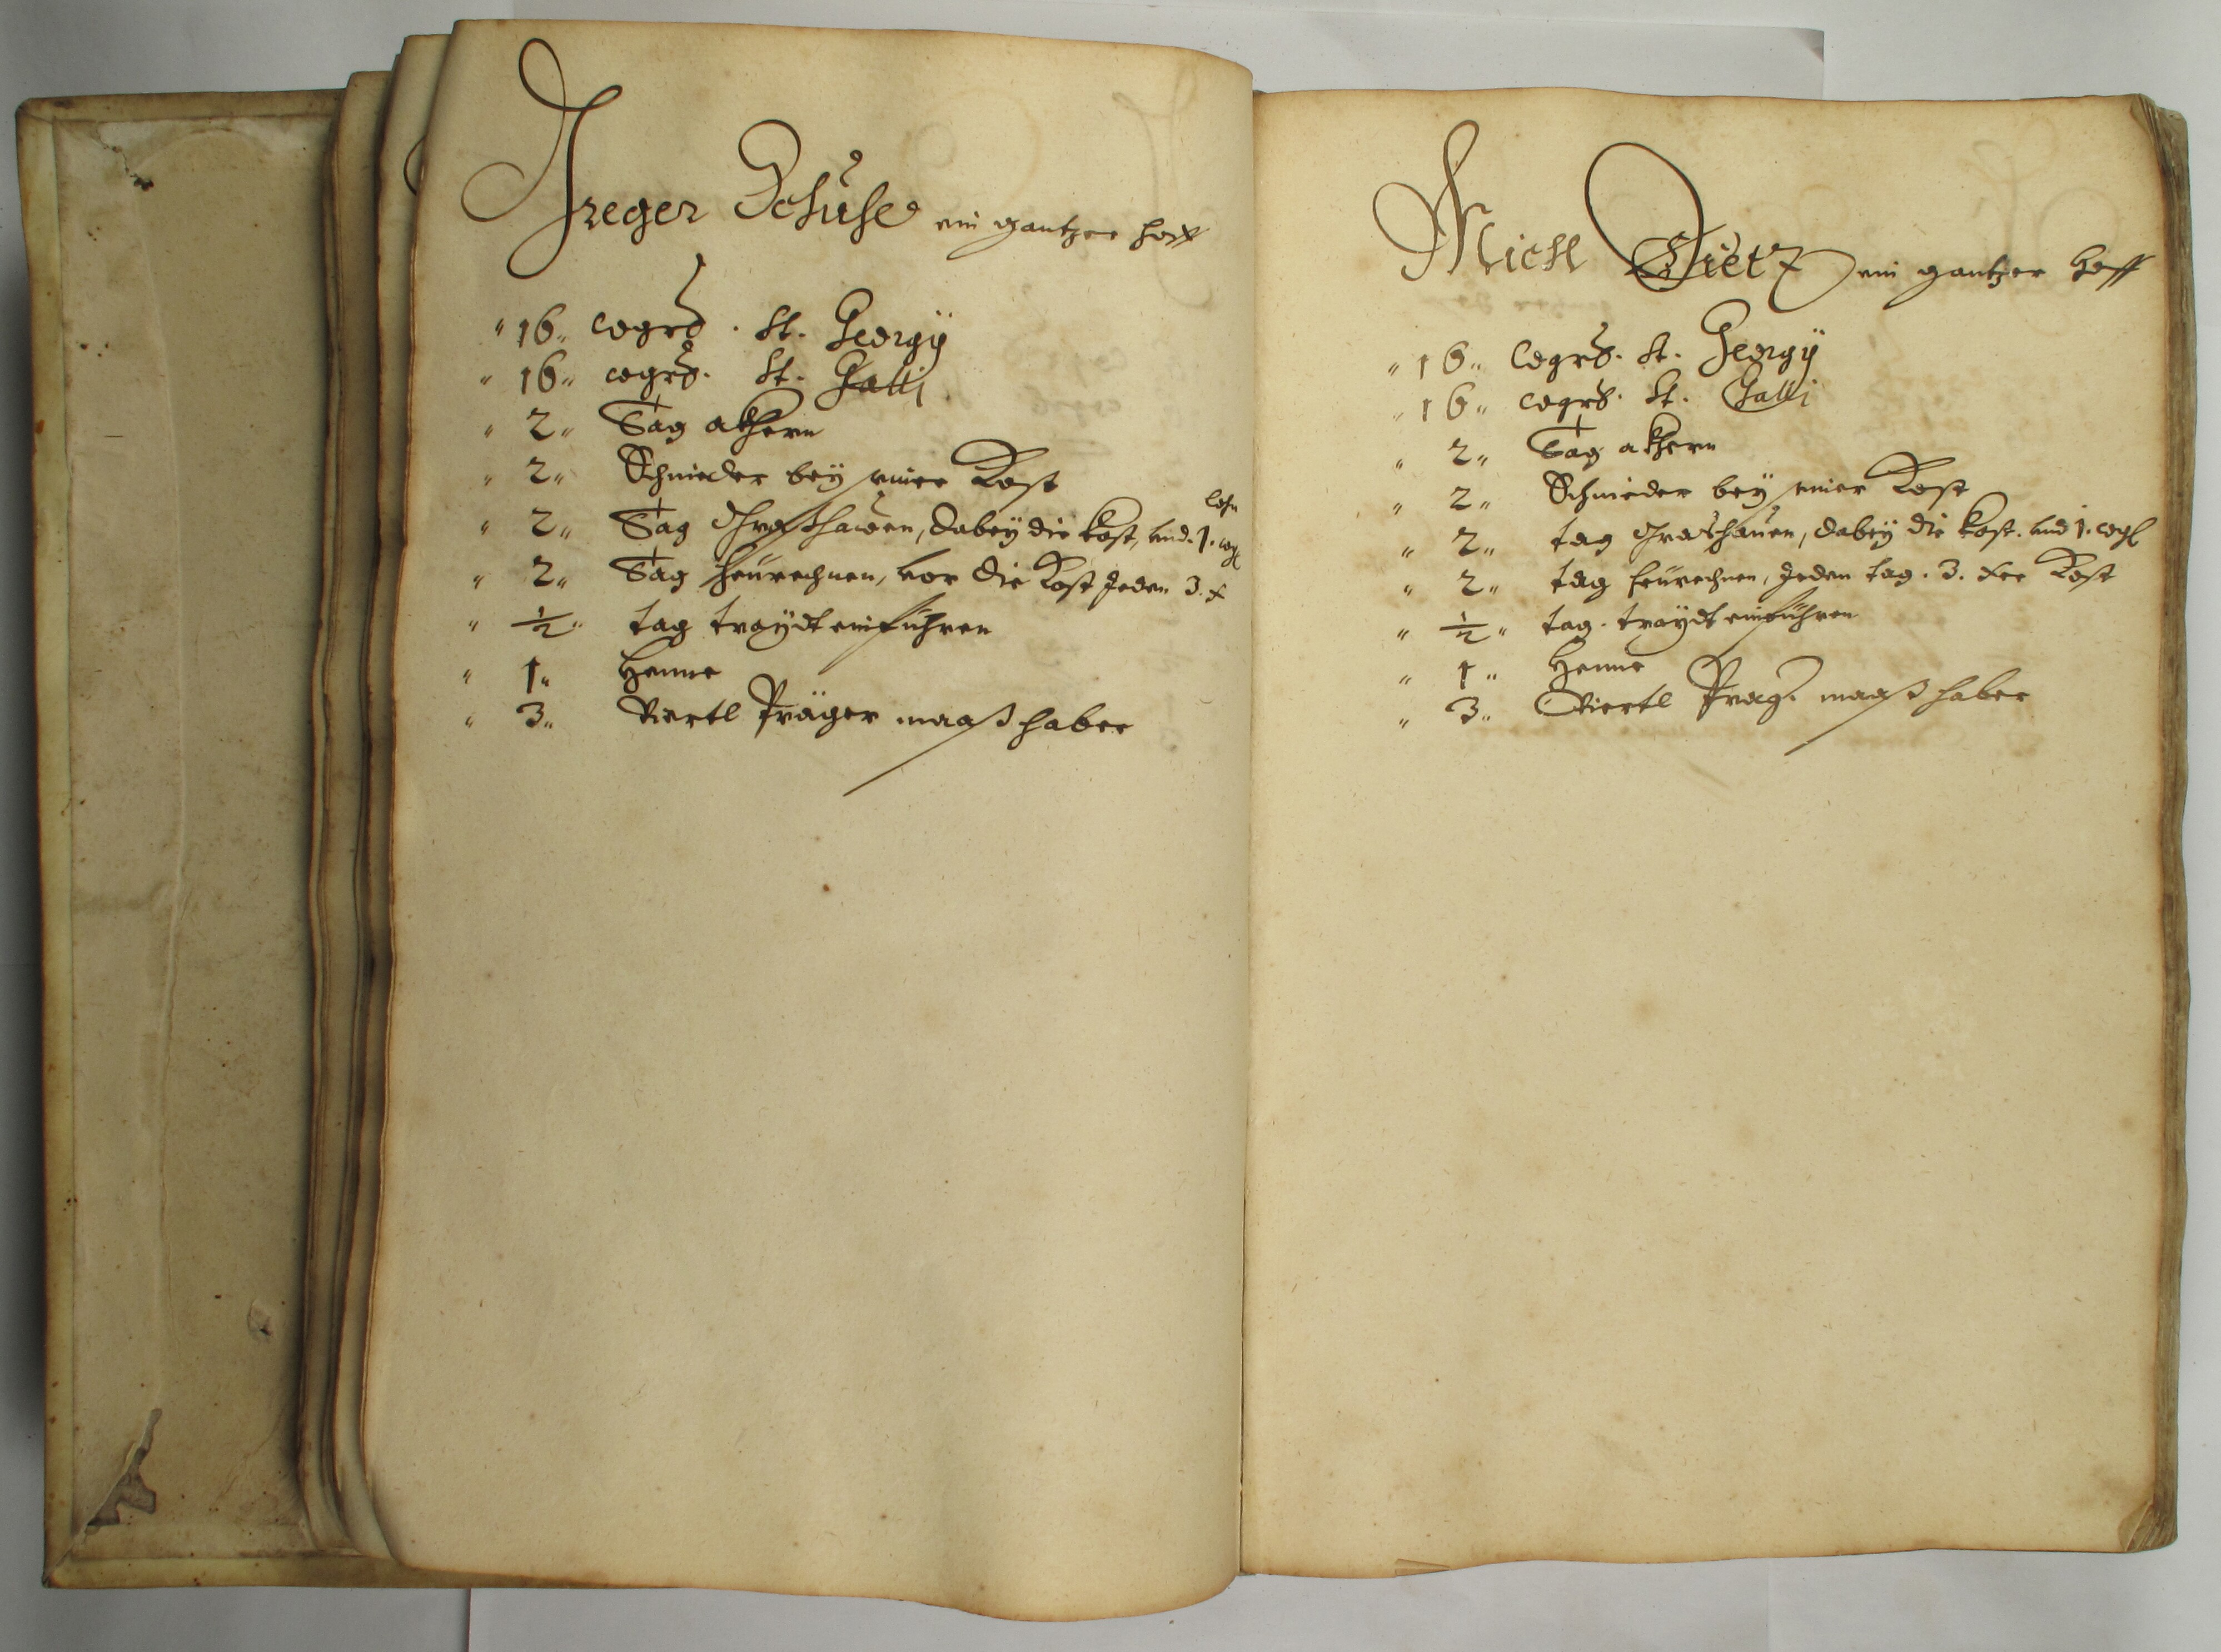 Jreger Schuse ein gantzer hoff
16 wgrd. St. Georgÿ
16 wgrs. St. Galli
2 Tag akhern
2 Schnieder beÿ einer Kost
2 Tag Graßhawen, dabeÿ die kost, vnd. 1. wgl lohn
2 Tag heürechnen, vor die Kost Jeden 3. x
½ tag traÿdt einführen
1 Henne
3 Viertl Präger maaß haber
Michl Dietz ein gantzer Hoff
16 wgrs. St. Georgÿ
16 wgrs. St. Galli
2 Tag akhern
2 Schnieder beÿ einer Kost
2 tag Graßhauen, dabeÿ die kost. vnd 1. wgl
2 tag heürechnen, Jeden tag. 3. xer Kost
½ tag. traÿdt einführen
1 Henne
3 Viertl Prag. maaß haber